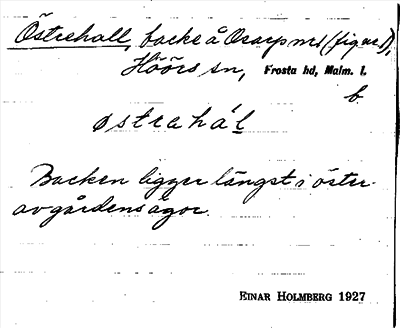 Östrehall, backe å Osarp m1 (fig av 1),
Höörs sn, Frosta hd, Malm. l.
b.
østrahál
Backen ligger längst i öster
av gårdens ägor.
EINAR HOLMBERG 1927